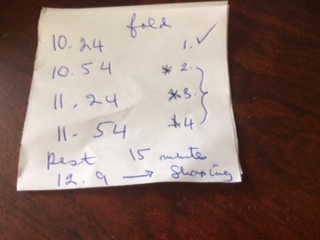 fold
10.24 1. ✓
10.54 * 2.
11.24 * 3.
11.54 * 4
Rest 15 minutes
12.9 → Shaping